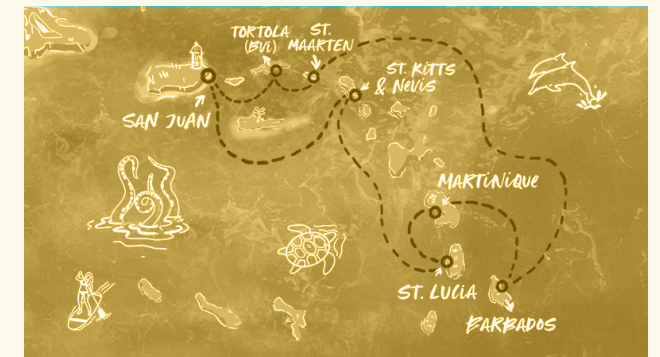 TORTOLA
(BVI)
ST.
MAARTEN
ST. KITTS
& NEVIS
SAN JUAN
MARTINIQUE
ST. LUCIA
BARBADOS